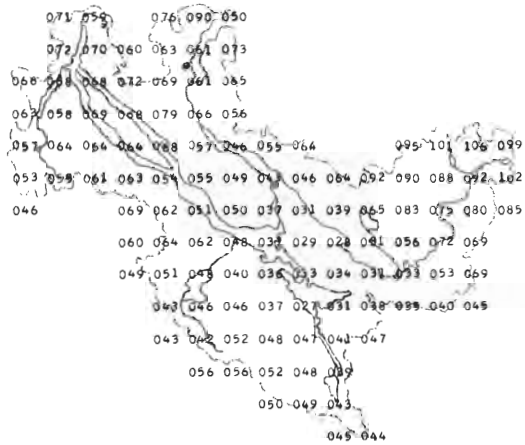 071 059 076 090 050
072 070 060 063 061 073
068 068 068 072 069 061 065
063 058 069 068 079 066 056
057 064 064 064 068 057 046 055 064 095 101 106 099
053 055 061 063 054 055 049 043 046 064 092 090 088 092 102
046 069 062 051 050 037 031 039 065 083 075 080 085
060 064 062 048 031 029 028 081 056 072 069
049 051 048 040 036 033 034 031 033 053 069
043 046 046 037 027 031 038 039 040 045
043 042 052 048 047 041 047
056 056 052 048 039
050 049 043
045 044